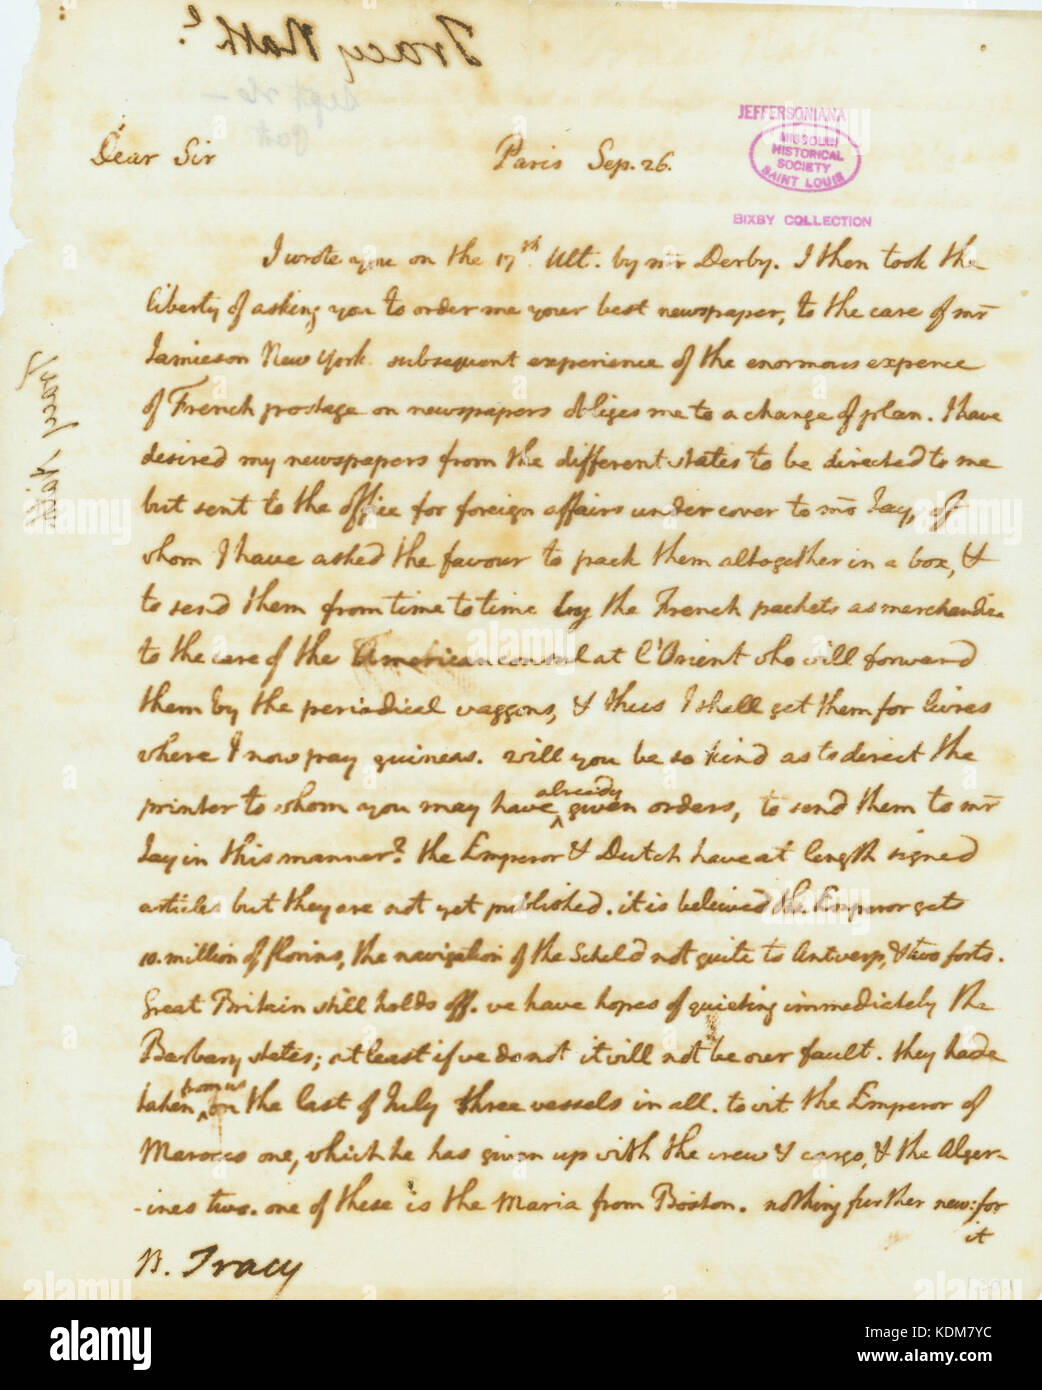 Tracy Nath.l
Sept 26 —
JEFFERSONIANA
MISSOURI
HISTORICAL
SOCIETY
SAINT LOUIS
BIXBY COLLECTION
Dear Sir Paris Sep. 26.
I wrote you on the 17th. Ult. by mr Derby. I then took the
liberty of asking you to order me your best newspaper, to the care of mr
Jamieson New York. subsequent experience of the enormous expence
of French postage on newspapers obliges me to a change of plan. I have
desired my newspapers from the different states to be directed to me
but sent to the office for foreign affairs under cover to mr Jay, of
whom I have asked the favour to pack them altogether in a box, &
to send them from time to time by the French packets as merchandize
to the care of the American consul at l'Orient who will forward
them by the periodical waggons, & thus I shall get them for livres
where I now pay guineas. will you be so kind as to direct the
printer to whom you may have already given orders, to send them to mr
Jay in this manner? the Emperor & Dutch have at length signed
articles but they are not yet published. it is believed the Emperor gets
10. million of florins, the navigation of the Scheld not quite to Antwerp, & two forts.
Great Britain still holds off. we have hopes of quieting immediately the
Barbary states; at least if we do not it will not be our fault. they had
taken from us on the last of July three vessels in all. to wit the Emperor of
Marocco one, which he has given up with the crew & cargo, & the Alger-
-ines two. one of these is the Maria from Boston. nothing further new: for
it
N. Tracy
Tracy Nath
alamy
Image ID: KDM7YC
www.alamy.com